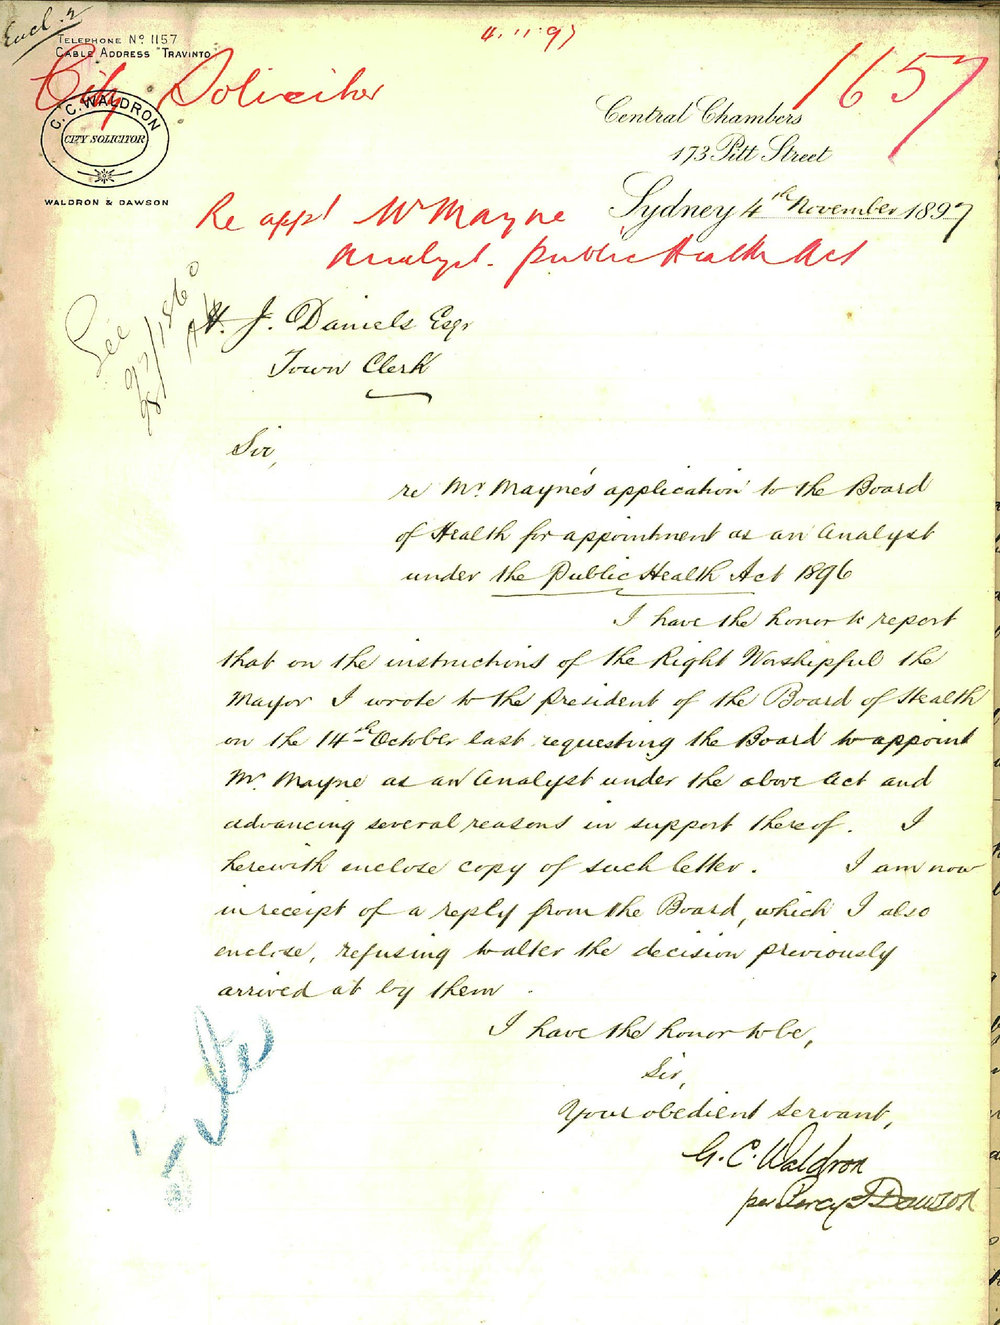 Encl. 2
TELEPHONE No 1157
CABLE ADDRESS "TRAVINTO"
4.11.97
City Solicitor
1657
G. C. WALDRON
CITY SOLICITOR
WALDRON & DAWSON
Central Chambers
173 Pitt Street
Sydney 4th November 1897
Re appt Mr Mayne
Analyst. Public Health Act
See
97/1860
H. J. Daniels Esqr
Town Clerk
Sir,
re Mr. Mayne's application to the Board
of Health for appointment as an Analyst
under the Public Health Act 1896
I have the honor to report
that on the instructions of the Right Worshipful the
Mayor I wrote to the President of the Board of Health
on the 14th October last requesting the Board to appoint
Mr. Mayne as an Analyst under the above Act and
advancing several reasons in support thereof. I
herewith enclose copy of such letter. I am now
in receipt of a reply from the Board, which I also
enclose, refusing to alter the decision previously
arrived at by them.
I have the honor to be,
Sir,
Your obedient servant,
G. C. Waldron
per Percy J Dawson